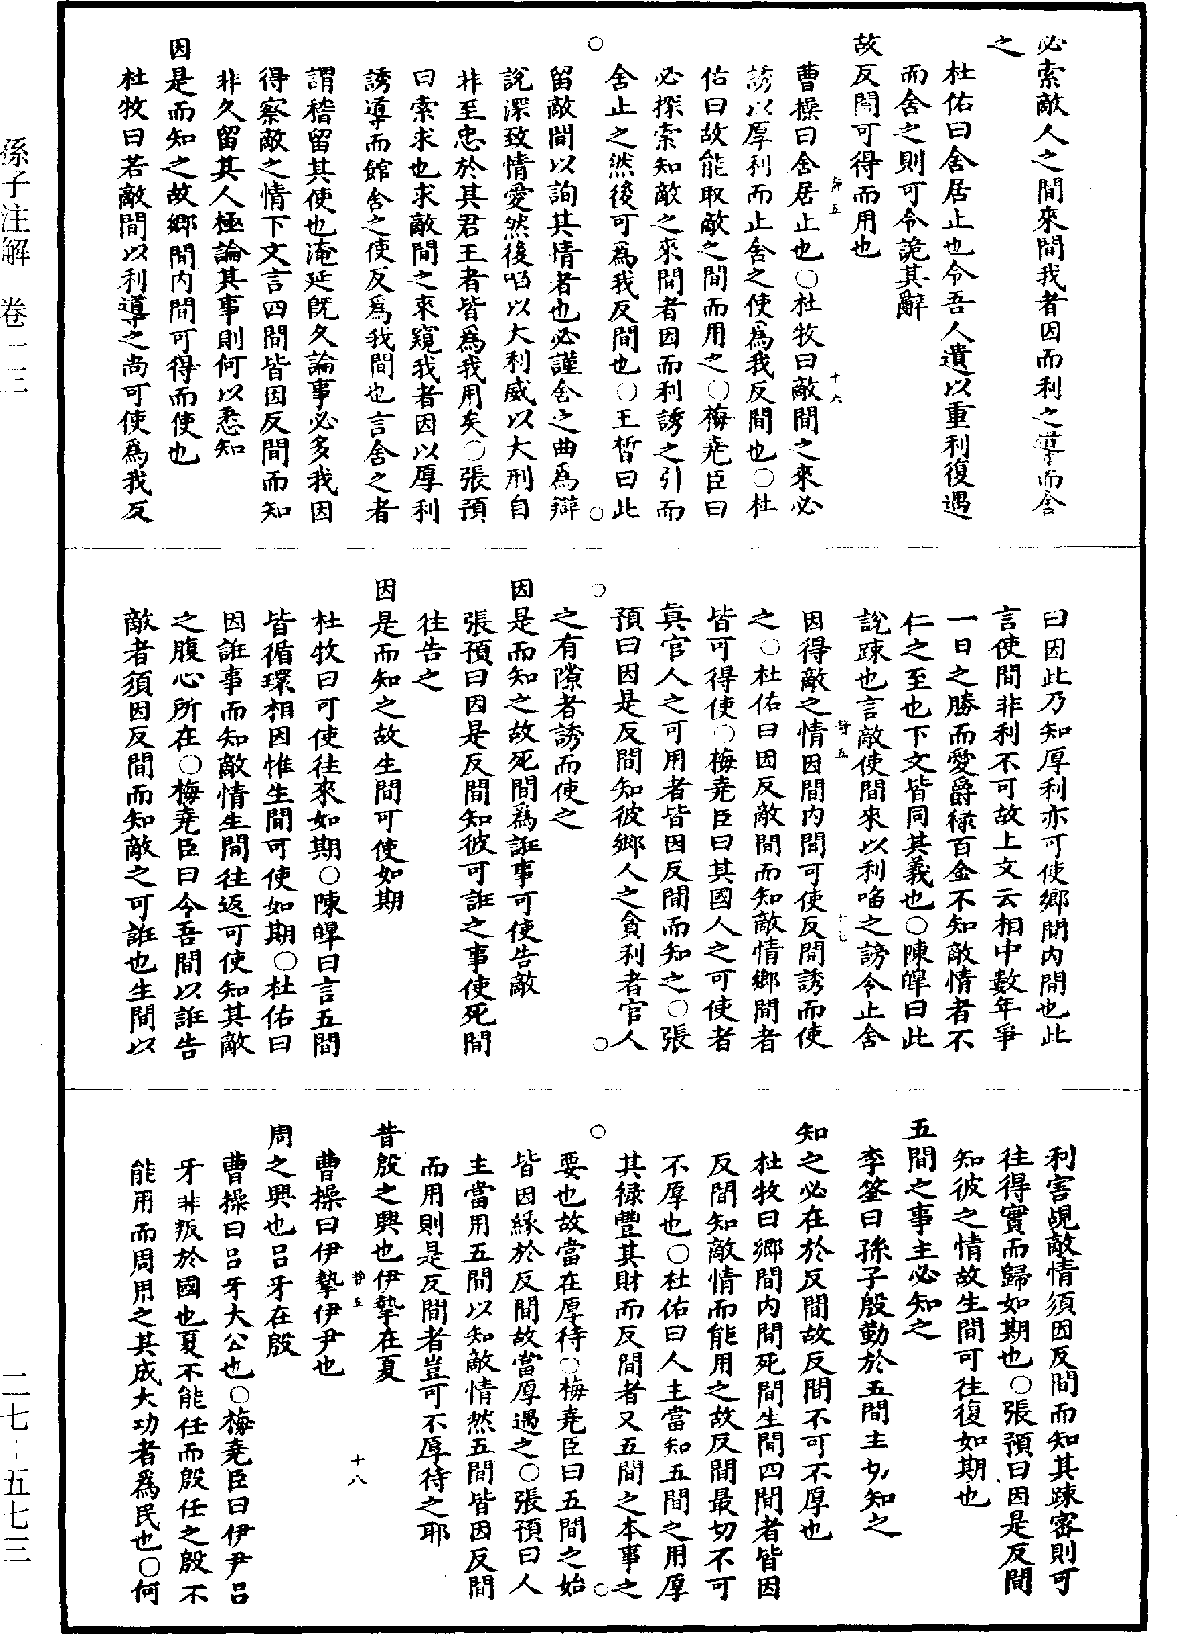 必索敵人之間來間我者因而利之導而舍
之
杜佑曰舍居止也令吾人遺以重利復遇
而舍之則可令詭其辭
故反間可得而用也
曹操曰舍居止也○杜牧曰敵間之來必
誘以厚利而止舍之使爲我反間也○杜
佑曰故能取敵之間而用之○梅堯臣曰
必探索知敵之來間者因而利誘之引而
舍止之然後可爲我反間也○王晳曰此
留敵間以詢其情者也必謹舍之曲爲辯
說深致情愛然後啗以大利威以大刑自
非至忠於其君王者皆爲我用矣○張預
曰索求也求敵間之來窺我者因以厚利
誘導而館舍之使反爲我間也言舍之者
謂稽留其使也淹延旣久論事必多我因
得察敵之情下文言四間皆因反間而知
非久留其人極論其事則何以悉知
因是而知之故鄉間內間可得而使也
杜牧曰若敵間以利導之尚可使爲我反
曰因此乃知厚利亦可使鄉間內間也此
言使間非利不可故上文云相守數年爭
一日之勝而愛爵祿百金不知敵情者不
仁之至也下文皆同其義也○陳皥曰此
說踈也言敵使間來以利啗之誘令止舍
因得敵之情因間內間可使反間誘而使
之○杜佑曰因反敵間而知敵情鄉間者
皆可得使○梅堯臣曰其國人之可使者
其官人之可用者皆因反間而知之○張
預曰因是反間知彼鄉人之貪利者官人
之有隙者誘而使之
因是而知之故死間爲誑事可使告敵
張預曰因是反間知彼可誑之事使死間
往告之
因是而知之故生間可使如期
杜牧曰可使往來如期○陳皥曰言五間
皆循環相因惟生間可使如期○杜佑曰
因誑事而知敵情生間往返可使知其敵
之腹心所在○梅堯臣曰令吾間以誑告
敵者須因反間而知敵之可誑也生間以
利害覘敵情須因反間而知其踈密則可
往得實而歸如期也○張預曰因是反間
知彼之情故生間可往復如期也
五間之事主必知之
李筌曰孫子殷勤於五間主切知之
知之必在於反間故反間不可不厚也
杜牧曰鄉間內間死間生間四間者皆因
反間知敵情而能用之故反間最切不可
不厚也○杜佑曰人主當知五間之用厚
其祿豐其財而反間者又五間之本事之
要也故當在厚待○梅堯臣曰五間之始
皆因緣於反間故當厚遇之○張預曰人
主當用五間以知敵情然五間皆因反間
而用則是反間者豈可不厚待之耶
昔殷之興也伊摯在夏
曹操曰伊摯伊尹也
周之興也呂牙在殷
曹操曰呂牙大公也○梅堯臣曰伊尹呂
牙非叛於國也夏不能任而殷任之殷不
能用而周用之其成大功者爲民也○何
孫子注解 卷一三
二七–五七三